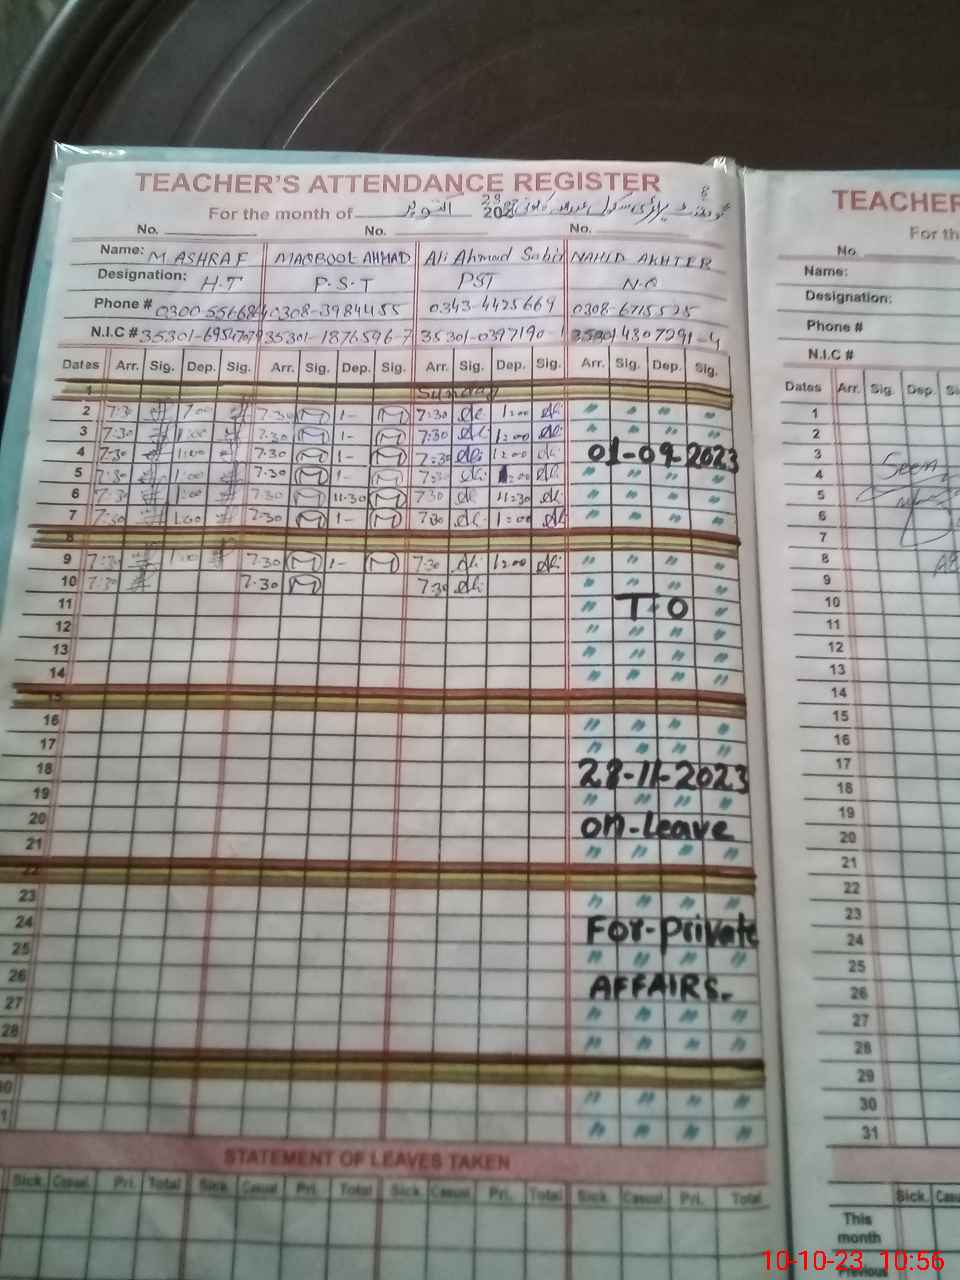 TEACHER'S ATTENDANCE REGISTER
For the month of اکتوبر
No. No. No.
Name: M ASHRAF MAQBOOL AHMAD Ali Ahmad Sabir NAHID AKHTER
Designation: H.T P.S.T PST N.Q
Phone # 0308-3984455 0343-4425669 0308-6715525
N.I.C # 35301-1876596-7
Dates Arr. Sig. Dep. Sig. Arr. Sig. Dep. Sig. Arr. Sig. Dep. Sig. Arr. Sig. Dep. Sig.
1 Sunday
2 7:30 1:00 7.30 M 1- M 7:30 Ali 1:00 Ali " " " "
3 7:30 1:00 7.30 M 1- M 7:30 Ali 1:00 Ali " " " "
4 7:30 1:00 7.30 M 1- M 7:30 Ali 1:00 Ali 01-09-2023
5 7:30 1:00 7.30 M 1- M 7:30 Ali 1:00 Ali " " " "
6 7:30 1:00 7.30 M 11.30 M 7:30 Ali 11:30 Ali " " " "
7 7:30 1:00 7.30 M 1- M 7:30 Ali 1:00 Ali " " " "
8
9 7:30 1:00 7.30 M 1- M 7:30 Ali 1:00 Ali " " " "
10 7:30 7.30 M 7:30 Ali " " " "
11 TO "
12 " " " "
13 " " " "
14 " " " "
15
16 " " " "
17 " " " "
18 28-11-2023
19 " " " "
20 On-Leave
21 " " " "
22
23 " " " "
24 For-Private
25 " " " "
26 AFFAIRS.
27 " " " "
28 " " " "
" " " "
" " " "
STATEMENT OF LEAVES TAKEN
Sick. Casual. Pri. Total Sick. Casual Pri. Total Sick. Casual Pri. Total Sick. Casual. Pri. Total
TEACHER
For th
No.
Name:
Designation:
Phone #
N.I.C #
Dates Arr. Sig. Dep.
1
2
3 Seen
4
5
6
7
8
9
10
11
12
13
14
15
16
17
18
19
20
21
22
23
24
25
26
27
28
29
30
31
Sick.
This
month
Previous
10-10-23 10:56